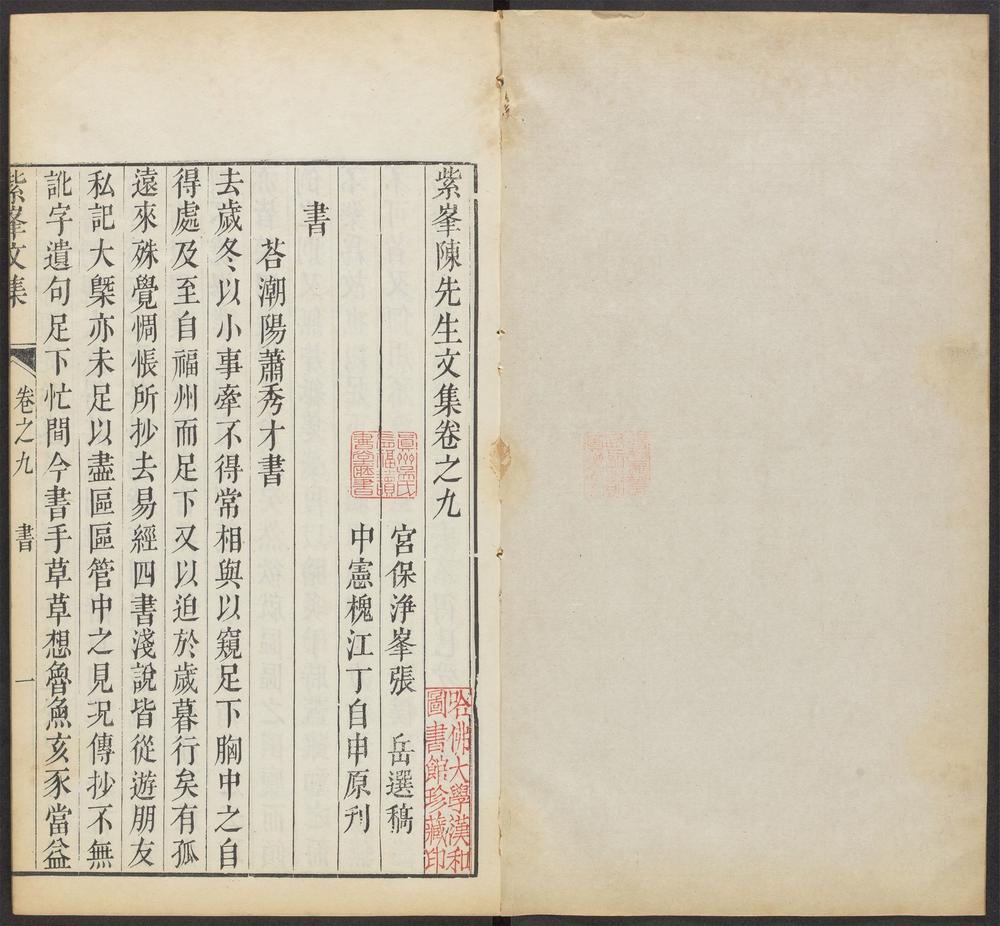 紫峯陳先生文集卷之九
宮保淨峯張 岳選稿
中憲槐江丁自申原刊
書
荅潮陽蕭秀才書
去歲冬以小事牽不得常相與以窺足下胸中之自
得處及至自福州而足下又以迫於歲暮行矣有孤
遠來殊覺惆悵所抄去易經四書淺說皆從遊朋友
私記大槩亦未足以盡區區管中之見況傳抄不無
訛字遺句足下忙間今書手草草想魯魚亥豕當益
紫峯文集 卷之九 書 一
哈佛大學漢和
圖書館珍藏印